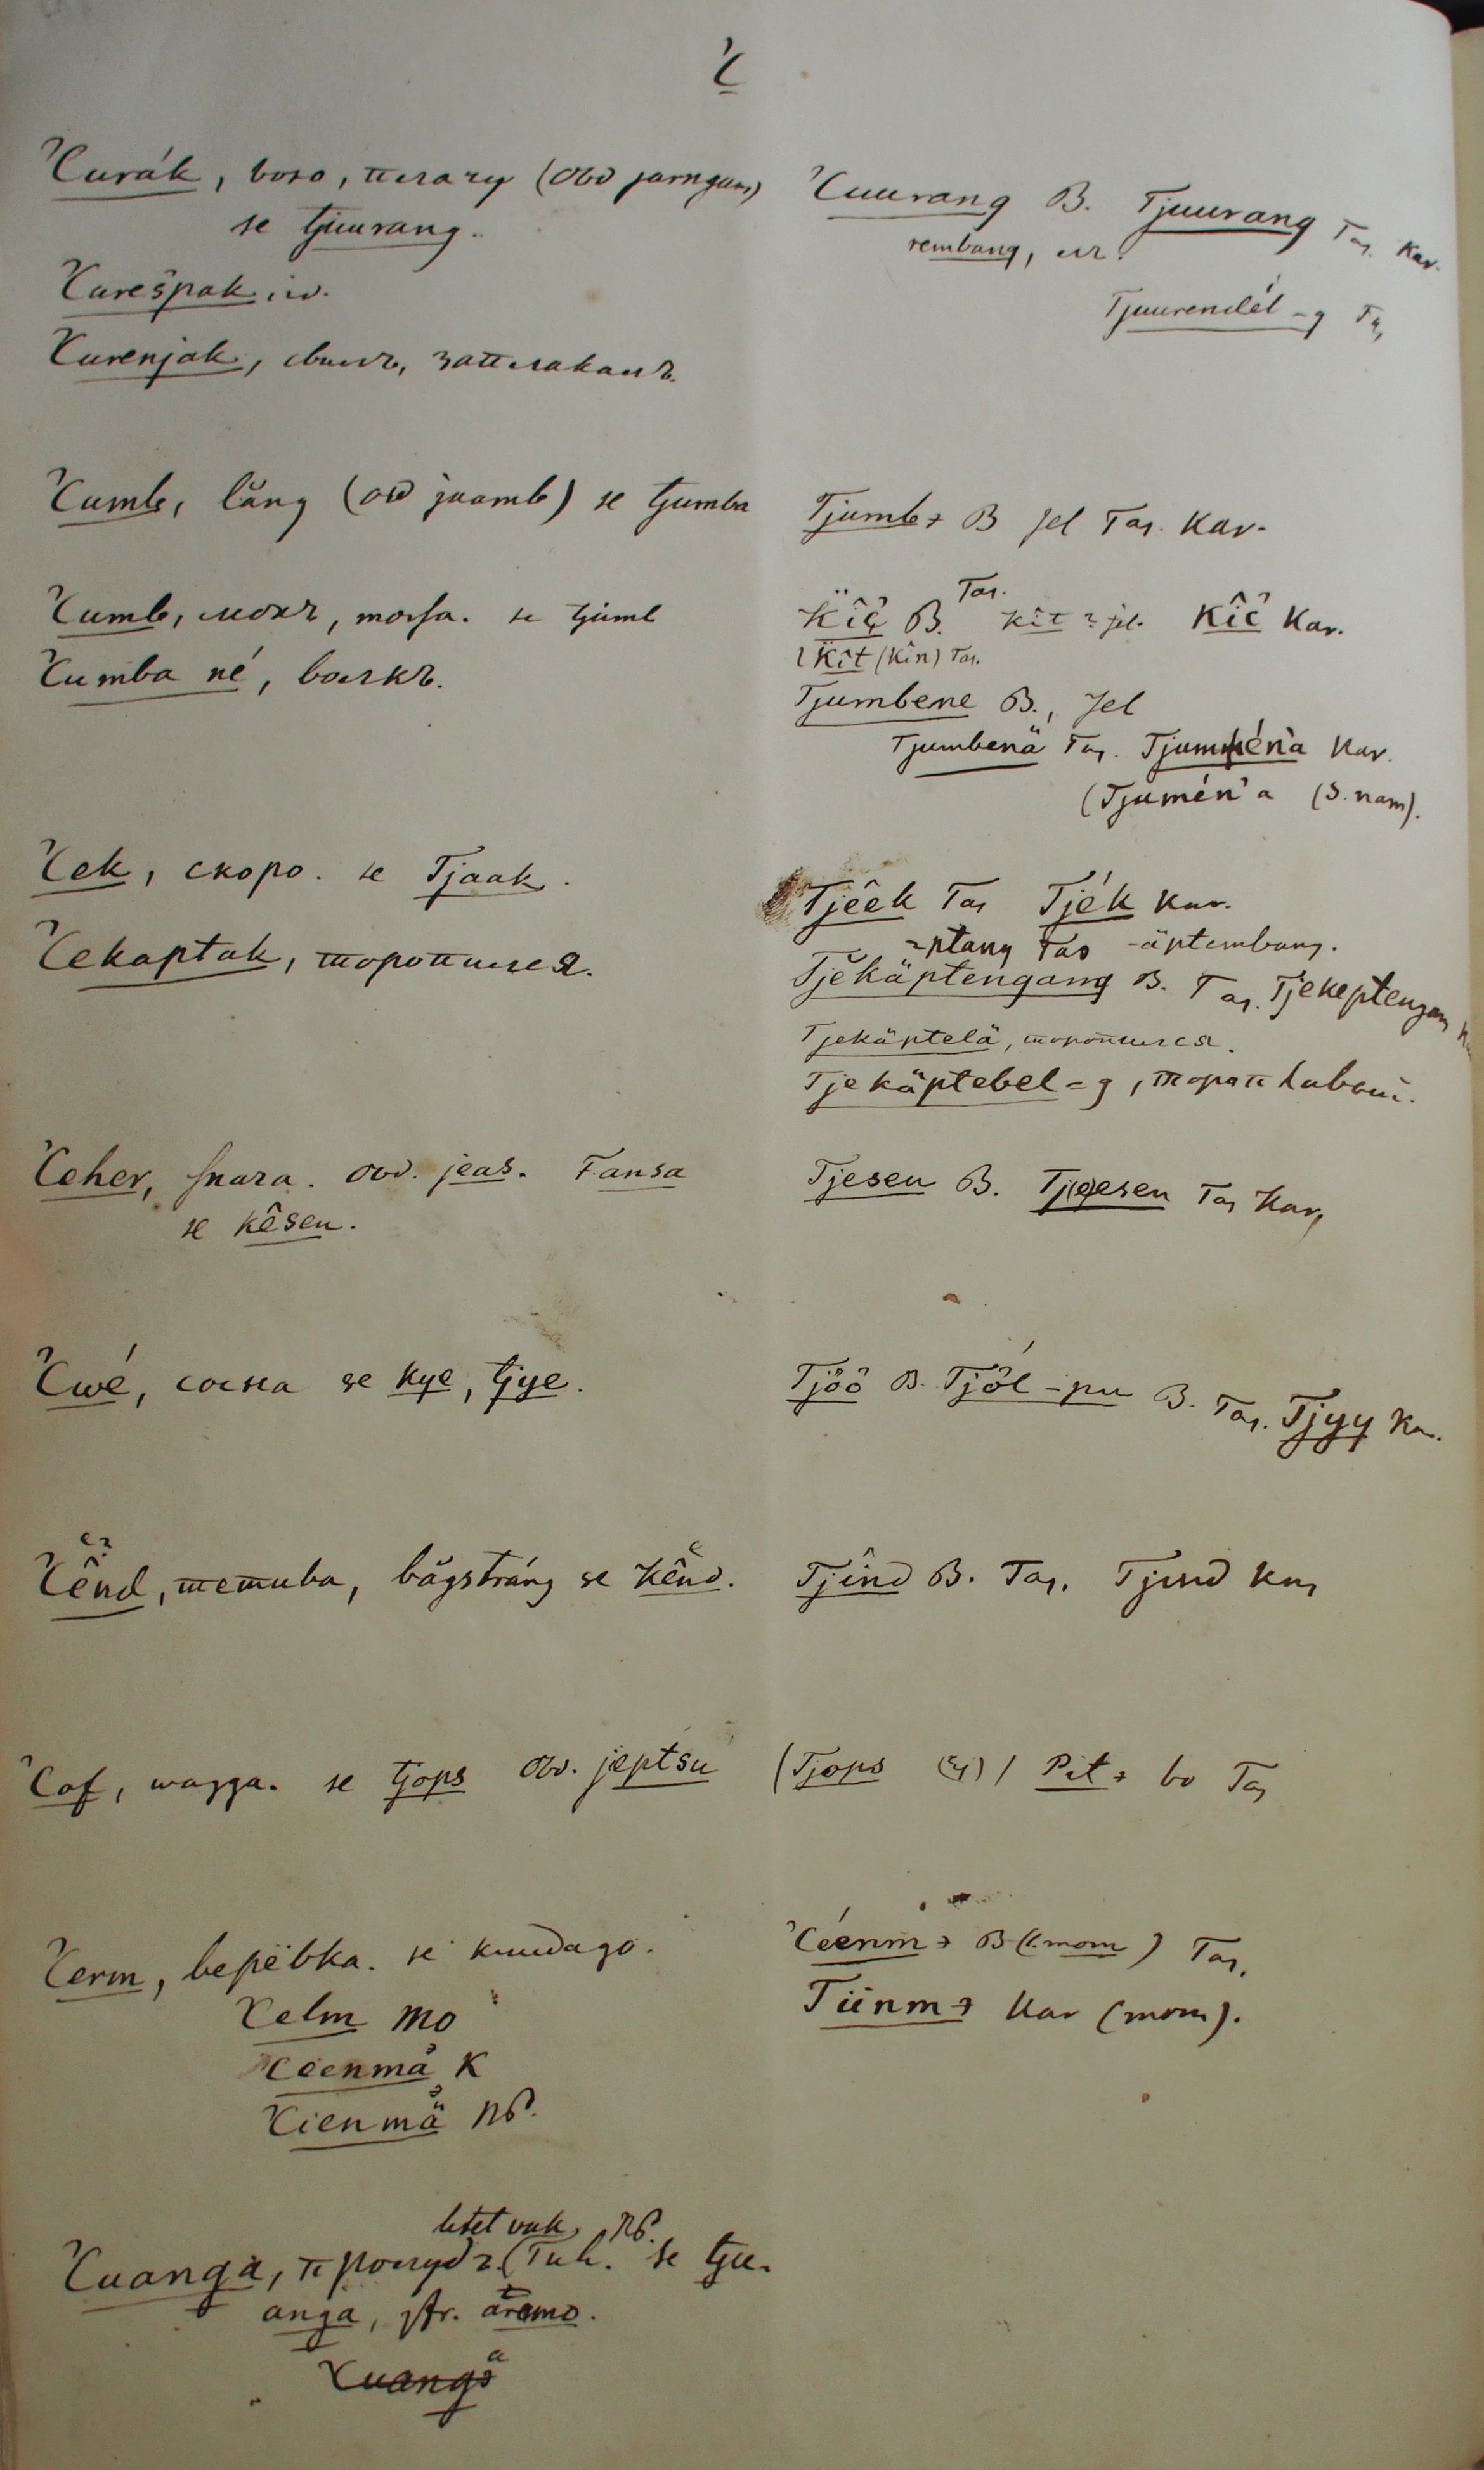 Č
Čurák, voso, плачу (Obd jarngam)
se tjuurang.
Čurešpak, id.
Čurenjak, заплакалъ.
Čumb, lång (obd jaamb) se tjumba
Čumb, мохъ, mossa. se tjumb
Čumba né, волкъ.
Ček, скоро. se Tjaak.
Čekaptak, торопился.
Čeher, snara. obd. jeas. Fansa
se kêsen.
Čwé, сосна se kye, tjye.
Čênd, тетива, bågsträng se kênd.
Čof, wagga. se tjops obd. jeptsu
Čerm, верёвка. se kuudago.
Čelm MO
Čeenmä K
Čienmä NP.
NP.
Čuanga, прорубъ (Tuh. se tju-
anga, jfr. äramo.
Čuanga
Čuurang B. Tjuurang Tas. Kar.
rembang, id.
Tjuurendél -g Tas
Tjumb B Jel Tas. Kar.
Tas.
Kîč B. Kît Jel. Kîč Kar.
Kît (Kîn) Tas.
Tjumbene B., Jel
Tjumbenä Tas. Tjumbén'a Kar.
(Tjumén'a (S. nam).
Tjêek Tas Tjék Kar.
-ptang Tas -äptembang.
Tjekäptengang B. Tas. Tjekeptengam
Tjekäptelä, торопился.
Tjekäptebel-g, торопливый.
Tjesen B. Tjeesen Tas Kar.
Tjöö B. Tjöl-pu B. Tas. Tjyy Kar.
Tjînd B. Tas. Tjind Kar
(Tjops (Ч)) Pit bo Tas
Čéenm B (mom) Tas.
Tiinm Kar (mom).